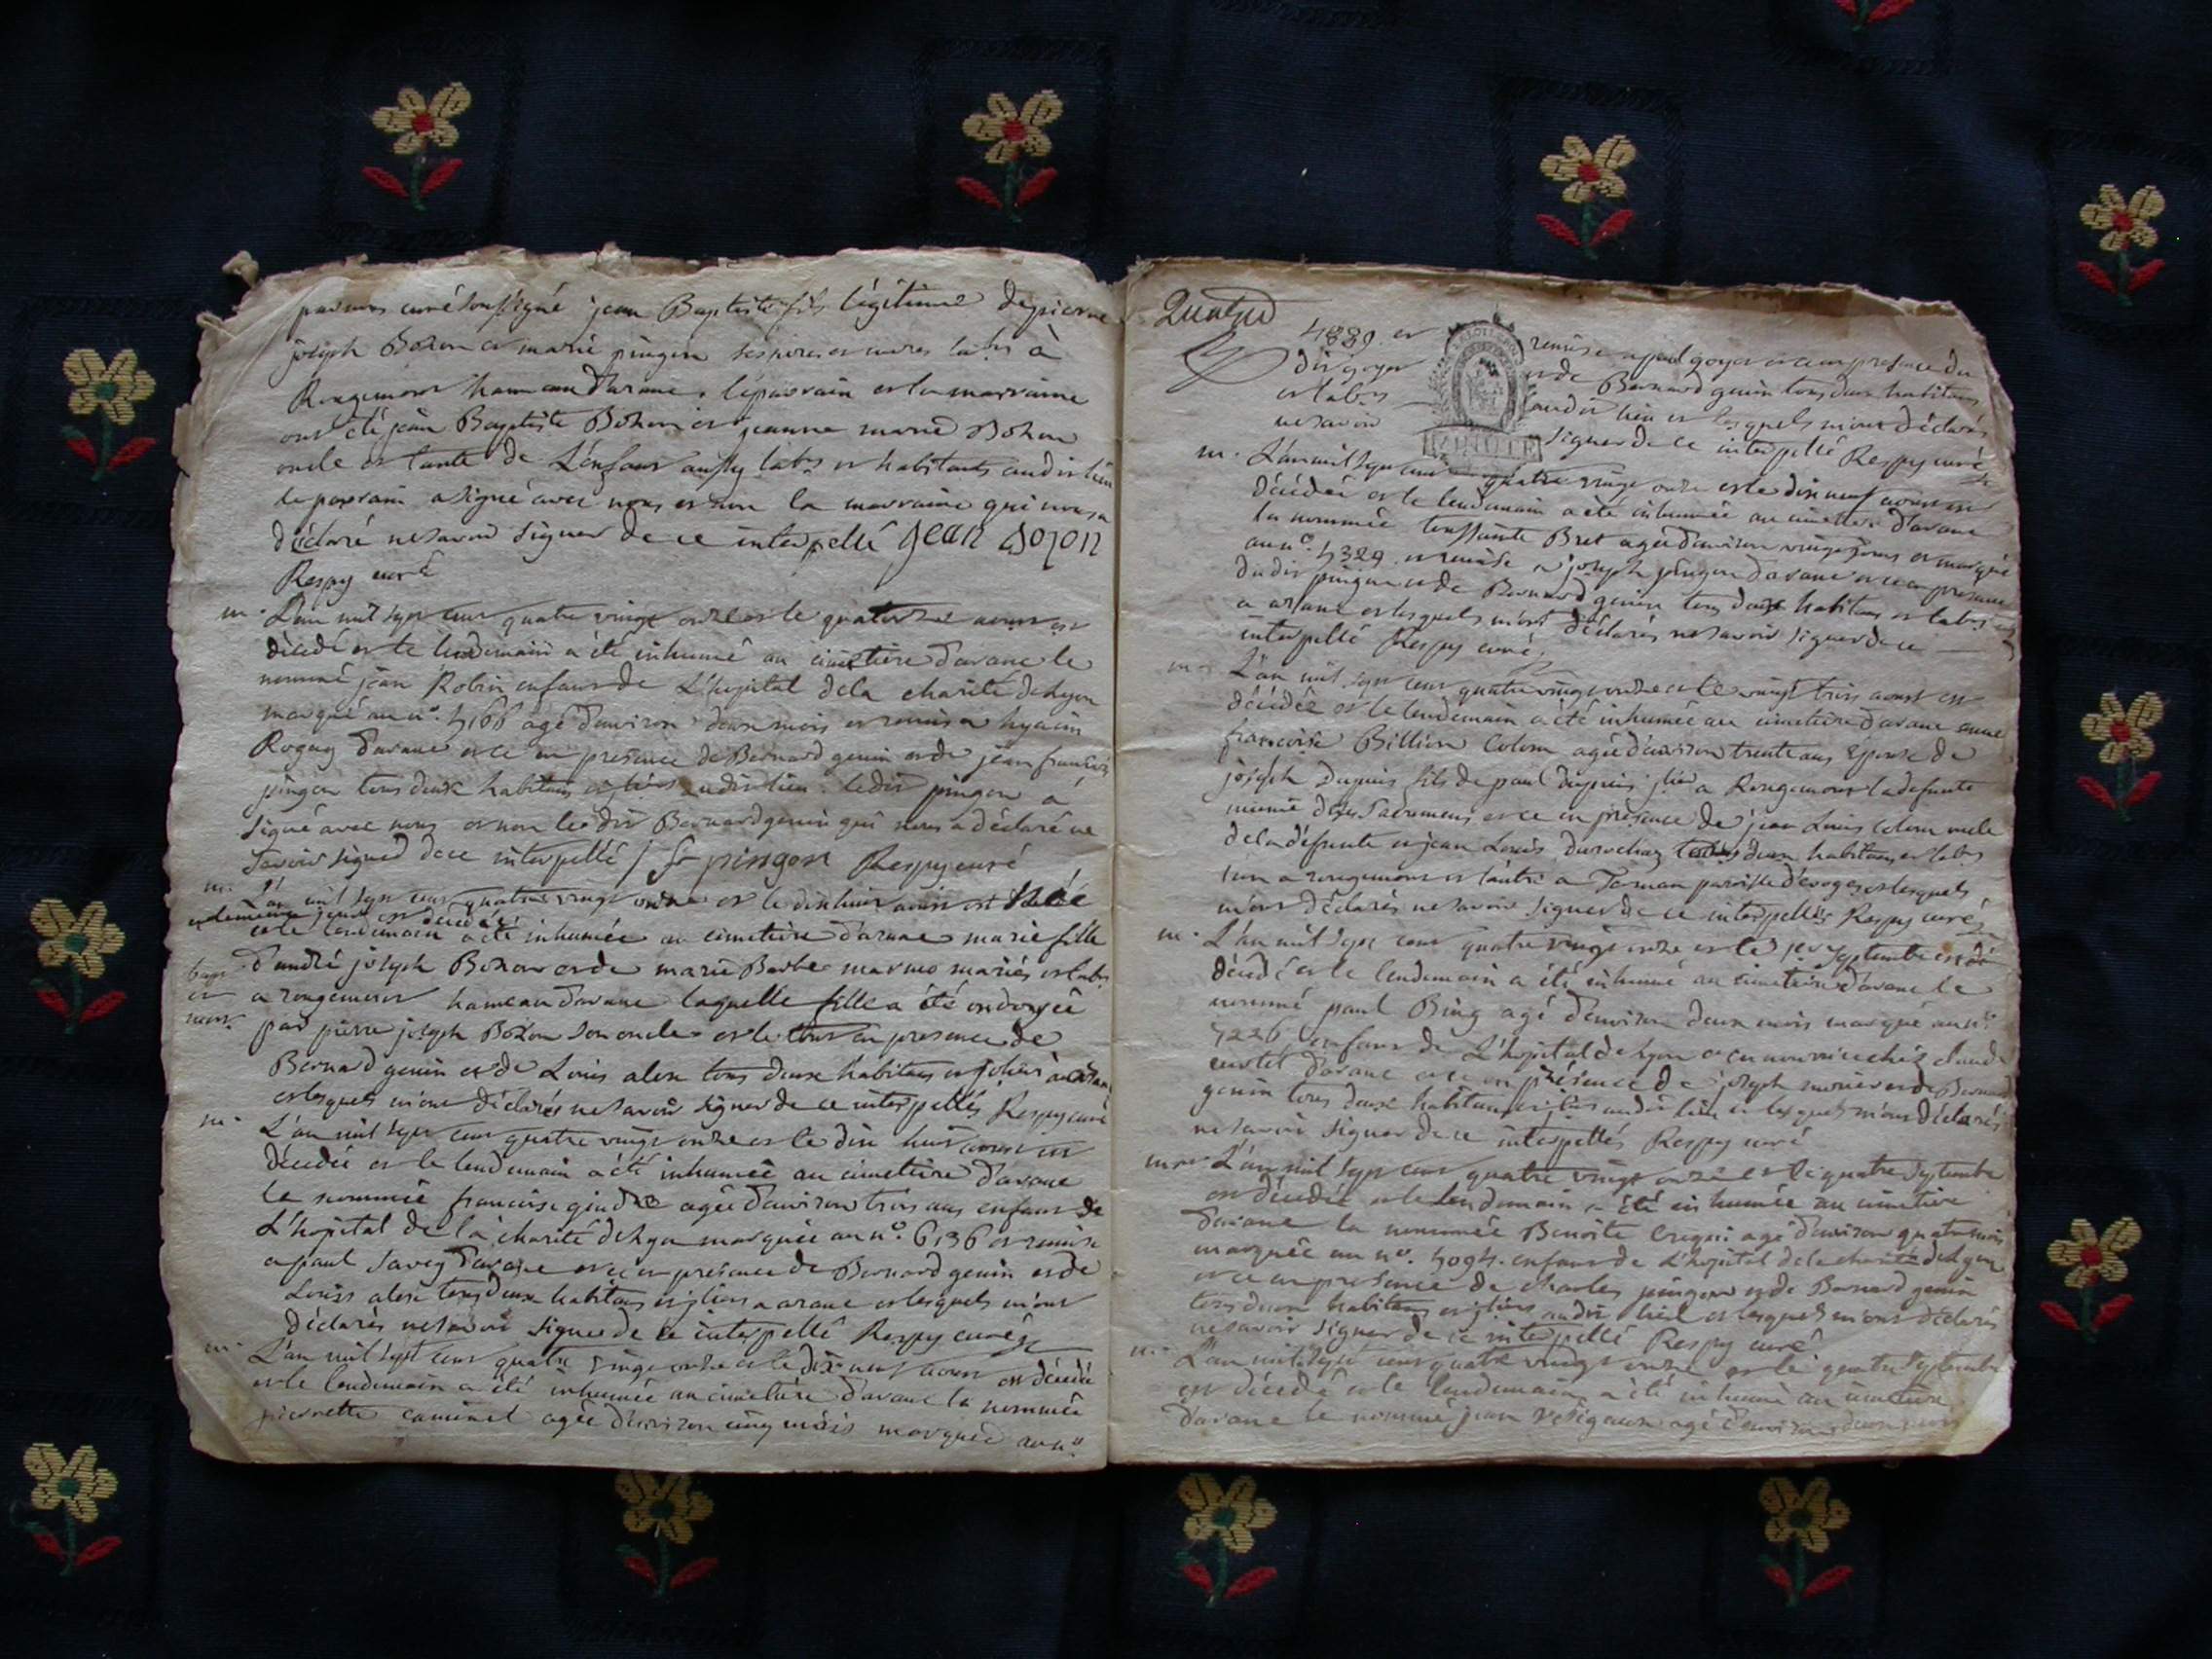 par nous curé soussigné jean Baptiste fils légitime de pierre
joseph Bozon et marie pingon ses pere et mere labrs à
Rougemont hameau d'arane. le parrain et la marraine
ont été jean Baptiste Bozon et jeanne marie Bozon
oncle et tante de L'enfant aussy labrs et habitants audit lieu
le parrain a signé avec nous et non la marraine qui nous a
déclaré ne savoir signer de ce interpellé jean Bozon
Respy curé
m. L'an mil sept cent quatre vingt onze et le quatorze aoust est
décédé et le lendemain a été inhumé au cimetiere d'arane le
nommé jean Robin enfant de L'hopital de la charité de Lyon
marqué au n°. 4166 agé d'environ deux mois et remis a
d'arane et ce en presence de Bernard genin et de jean francois
pingon tous deux habitans et audit lieu. ledit pingon a
signé avec nous et non ledit Bernard genin qui nous a déclaré ne
savoir signer de ce interpellé / pingon Respy curé
m. L'an mil sept cent quatre vingt onze et le dix huit aoust est née
et le meme jour est decedée
et le lendemain a été inhumée au cimetiere d'arane marie fille
bapt d'andré joseph Bozon et de marie Barbe mariés et labrs
et a rougemont hameau d'arane laquelle fille a été ondoyée
mort. par pierre joseph Bozon son oncle et le tout en presence de
Bernard genin et de Louis alex tous deux habitans
et lesquels m'ont déclarés ne savoir signer de ce interpellés Respy curé
m. L'an mil sept cent quatre vingt onze et le dix huit aoust est
décédée et le lendemain a été inhumée au cimetiere d'arane
la nommée francoise agée d'environ trois ans enfant de
L'hopital de la charité de Lyon marquée au n°. 6136 et remise
a paul savey d'arane et ce en presence de Bernard genin et de
Louis alex tous deux habitans et a arane et lesquels m'ont
déclarés ne savoir signer de ce interpellé Respy curé
m. L'an mil sept cent quatre vingt onze et le dix neuf aoust est décédée
et le lendemain a été inhumée au cimetiere d'arane la nommée
pierrette agée d'environ cinq mois marquée au n°
Quatre
4889. et remise a paul goyet et ce en presence du
dit goyet et de Bernard genin tous deux habitans
et labrs audit lieu et lesquels m'ont déclarés
ne savoir signer de ce interpellé Respy curé
m. L'an mil sept cent quatre vingt onze et le dix neuf aoust est
décédée et le lendemain a été inhumée au cimetiere d'arane
la nommée toussainte Bret agée d'environ vingt jours et marquée
au n°. 4329 et remise a joseph pingon d'arane et ce en presence
dudit pingon et de Bernard genin tous deux habitans et labrs
a arane et lesquels m'ont déclarés ne savoir signer de ce
interpellé Respy curé.
m L'an mil sept cent quatre vingt onze et le vingt trois aoust est
décédée et le lendemain a été inhumée au cimetiere d'arane anne
francoise Billion Colom agée d'environ trente ans Epouse de
joseph Dupuis fils de paul dupuis a Rougemont la defunte
munie de ses Sacremens et ce en présence de jean Louis Colom oncle
de la défunte et jean Louis deux habitans et labrs
l'un a rougemont et l'autre a paroisse d'evoges et lesquels
m'ont déclarés ne savoir signer de ce interpellés Respy curé
m. L'an mil sept cent quatre vingt onze et le 1er Septembre est
décédé et le lendemain a été inhumé au cimetiere d'arane le
nommé paul Bing agé d'environ deux mois marqué au n°
4226 enfant de L'hopital de Lyon et en nourrice chéz
d'arane et ce en présence de joseph et de Bernard
genin tous deux habitans et audit lieu et lesquels m'ont déclarés
ne savoir signer de ce interpellés Respy curé
mor L'an mil sept cent quatre vingt onze et le quatre Septembre
est décédée et le lendemain a été inhumée au cimetiere
d'arane la nommée Benoite agé d'environ quatre mois
marquée au n°. 4094. enfant de L'hopital de la charité de Lyon
et ce en presence de charles pingon et de Bernard genin
tous deux habitans et audit lieu et lesquels m'ont déclarés
ne savoir signer de ce interpellé Respy curé
m. L'an mil sept cent quatre vingt onze et le quatre Septembre
est décédé et le lendemain a été inhumé au cimetiere
d'arane le nommé jean agé d'environ deux mois